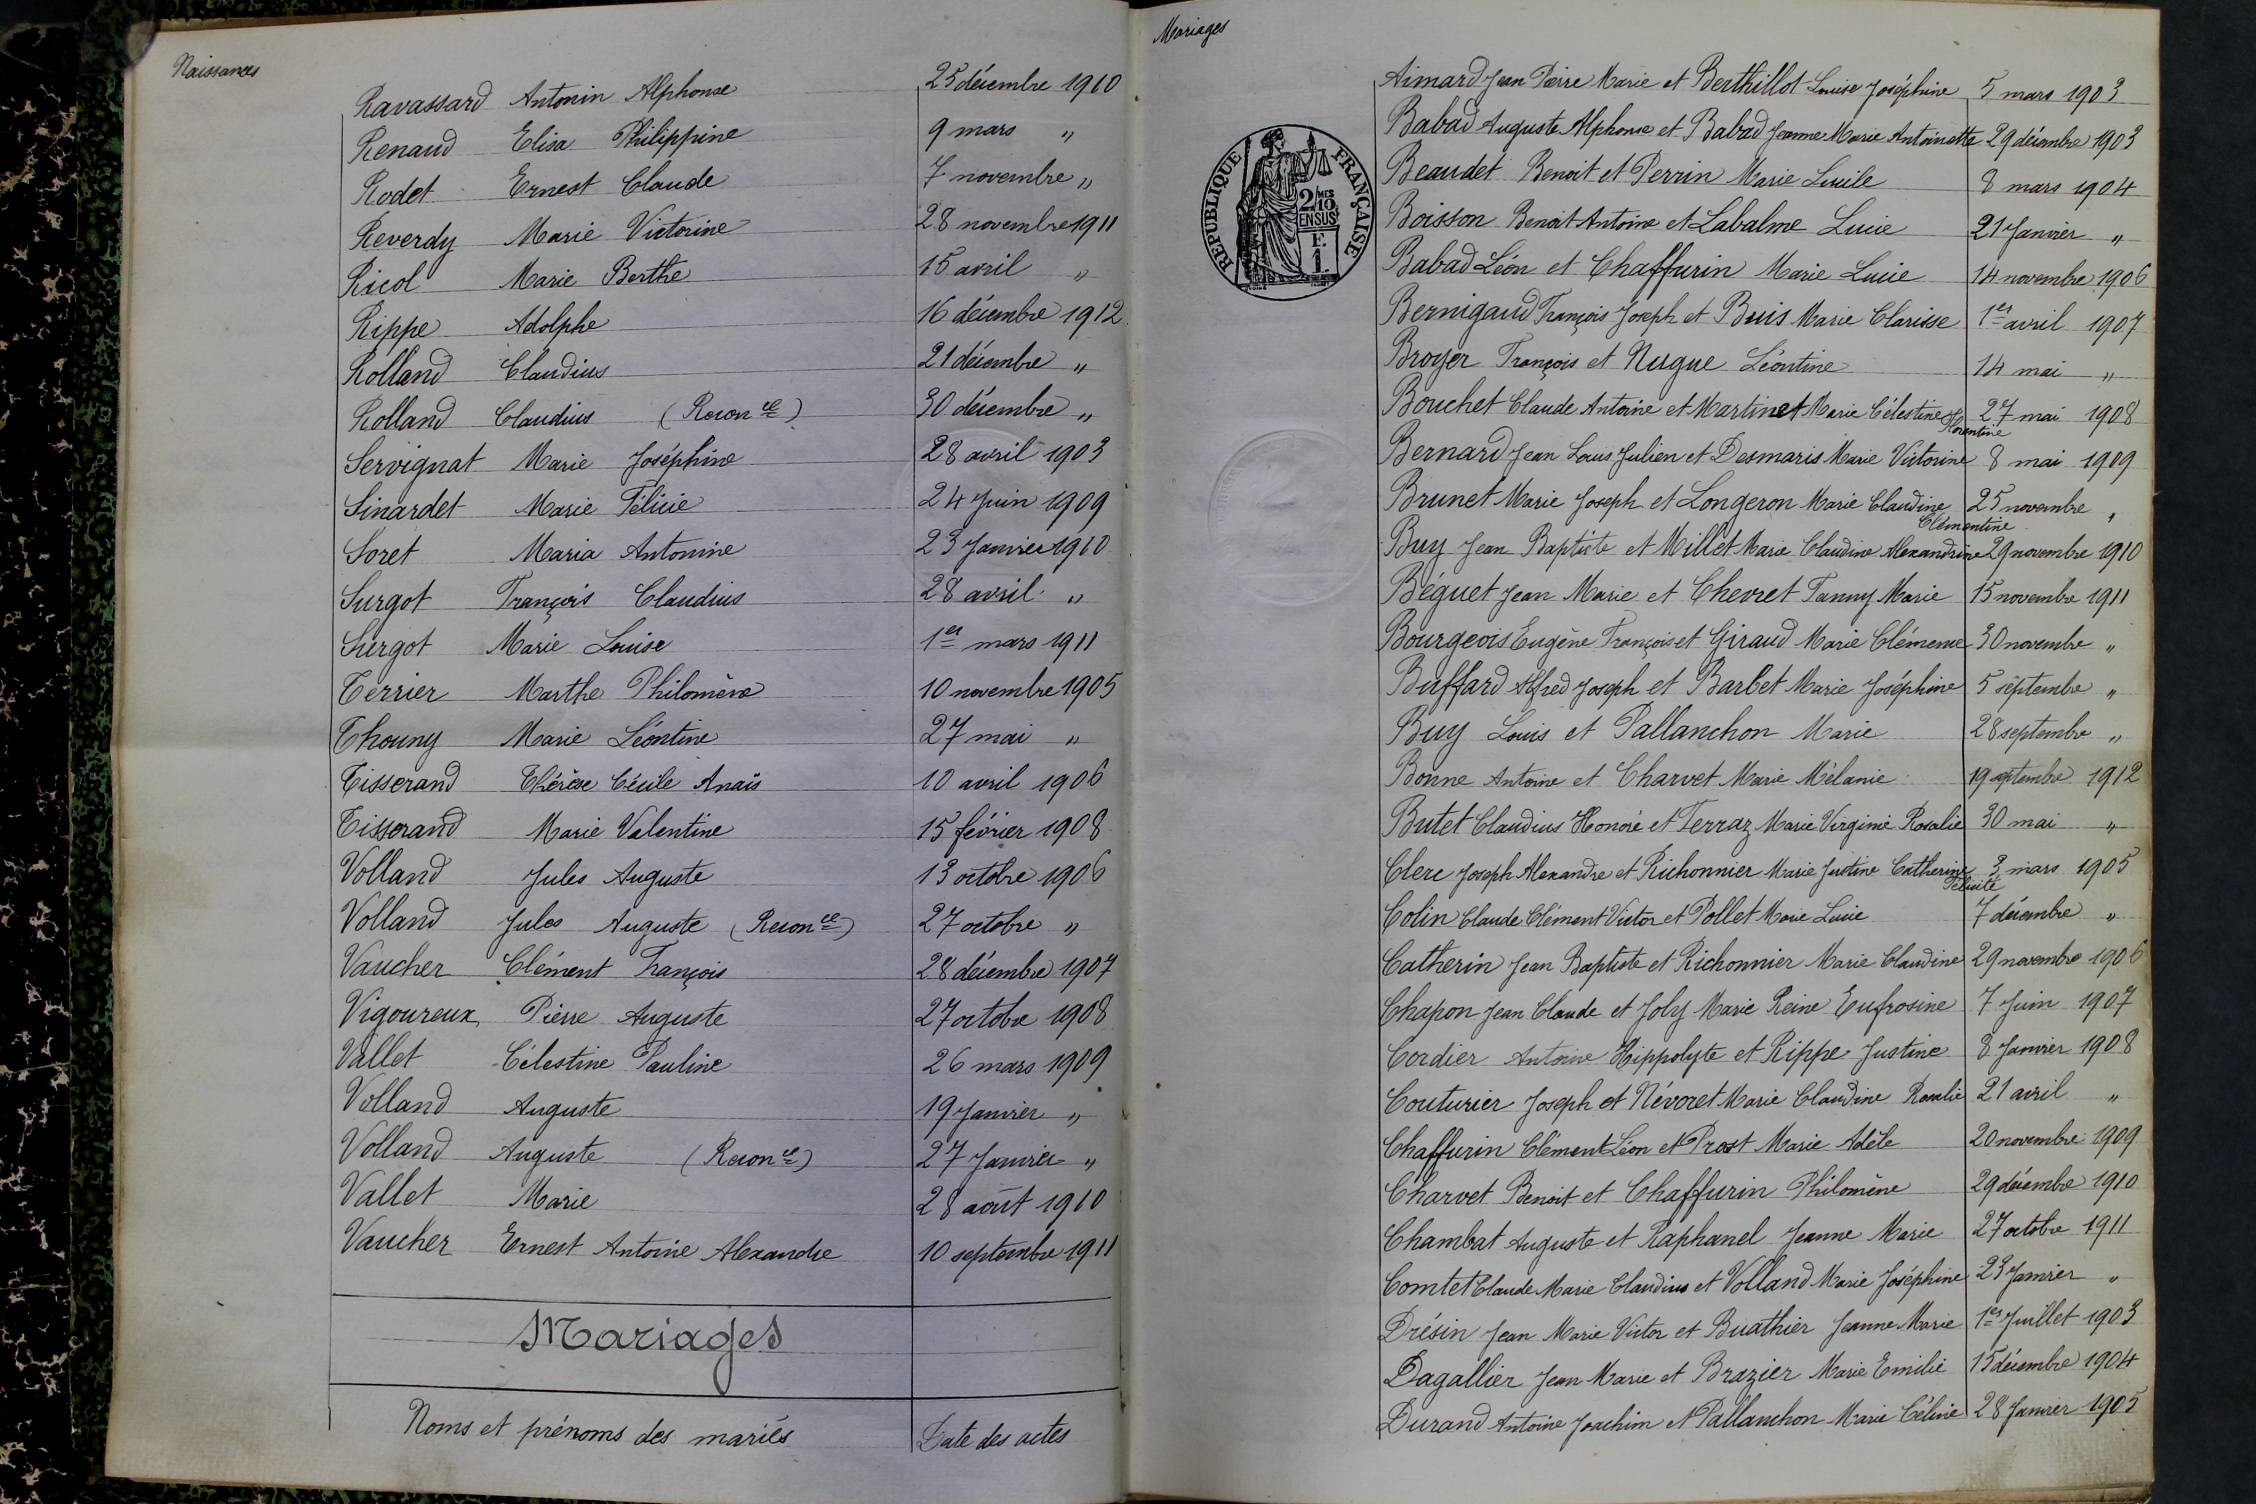 Naissances
Ravassard Antonin Alphonse 25 décembre 1910
Renaud Elisa Philippine 9 mars "
Rodet Ernest Claude 7 novembre "
Reverdy Marie Victorine 28 novembre 1911
Ricol Marie Berthe 15 avril "
Rippe Adolphe 16 décembre 1912
Rolland Claudius 21 décembre "
Rolland Claudius (Reconce) 30 décembre "
Servignat Marie Joséphine 28 avril 1903
Sinardet Marie Félicie 24 Juin 1909
Soret Maria Antonine 23 Janvier 1910
Surgot François Claudius 28 avril "
Surgot Marie Louise 1er mars 1911
Terrier Marthe Philomène 10 novembre 1905
Thouny Marie Léontine 27 mai "
Tisserand Thérèse Cécile Anaïs 10 avril 1906
Tisserand Marie Valentine 15 février 1908
Volland Jules Auguste 13 octobre 1906
Volland Jules Auguste (Reconce) 27 octobre "
Vaucher Clément François 28 décembre 1907
Vigoureux Pierre Auguste 27 octobre 1908
Vallet Célestine Pauline 26 mars 1909
Volland Auguste 19 Janvier "
Volland Auguste (Reconce) 27 Janvier "
Vallet Marie 28 août 1910
Vaucher Ernest Antoine Alexandre 10 septembre 1911
Mariages
Noms et prénoms des mariés Date des actes
Mariages
RÉPUBLIQUE FRANÇAISE
2/MES 10
EN SUS
F.
1.
Aimard Jean Pierre Marie et Berthillot Louise Joséphine 5 mars 1903
Babad Auguste Alphonse et Babad Jeanne Marie Antoinette 29 décembre 1903
Beaudet Benoit et Perrin Marie Lucile 8 mars 1904
Boisson Benoit Antoine et Labalme Lucie 21 Janvier "
Babad Léon et Chaffurin Marie Lucie 14 novembre 1906
Bernigaud François Joseph et Buis Marie Clarisse 1er avril 1907
Broyer François et Nugue Léontine 14 mai "
Bouchet Claude Antoine et Martinet Marie Célestine Florentine 27 mai 1908
Bernard Jean Louis Julien et Desmaris Marie Victorine 8 mai 1909
Brunet Marie Joseph et Longeron Marie Claudine Clémentine 25 novembre "
Buy Jean Baptiste et Millet Marie Claudine Alexandrine 29 novembre 1910
Béguet Jean Marie et Chevret Fanny Marie 15 novembre 1911
Bourgeois Eugène François et Giraud Marie Clémence 30 novembre "
Buffard Alfred Joseph et Barbet Marie Joséphine 5 septembre "
Buy Louis et Pallanchon Marie 28 septembre "
Bonne Antoine et Charvet Marie Mélanie 19 septembre 1912
Butet Claudius Honoré et Ferraz Marie Virginie Rosalie 30 mai "
Clerc Joseph Alexandre et Richonnier Marie Justine Catherine Félicité 3 mars 1905
Colin Claude Clément Victor et Pollet Marie Lucie 7 décembre "
Catherin Jean Baptiste et Richonnier Marie Claudine 29 novembre 1906
Chapon Jean Claude et Joly Marie Reine Eufrosine 7 Juin 1907
Cordier Antoine Hippolyte et Rippe Justine 8 Janvier 1908
Couturier Joseph et Névoret Marie Claudine Rosalie 21 avril "
Chaffurin Clément Léon et Prost Marie Adèle 20 novembre 1909
Charvet Benoit et Chaffurin Philomène 29 décembre 1910
Chambat Auguste et Raphanel Jeanne Marie 27 octobre 1911
Comtet Claude Marie Claudius et Volland Marie Joséphine 23 Janvier "
Drésin Jean Marie Victor et Buathier Jeanne Marie 1er Juillet 1903
Dagallier Jean Marie et Brazier Marie Emilie 15 décembre 1904
Durand Antoine Joachim et Pallanchon Marie Céline 28 Janvier 1905